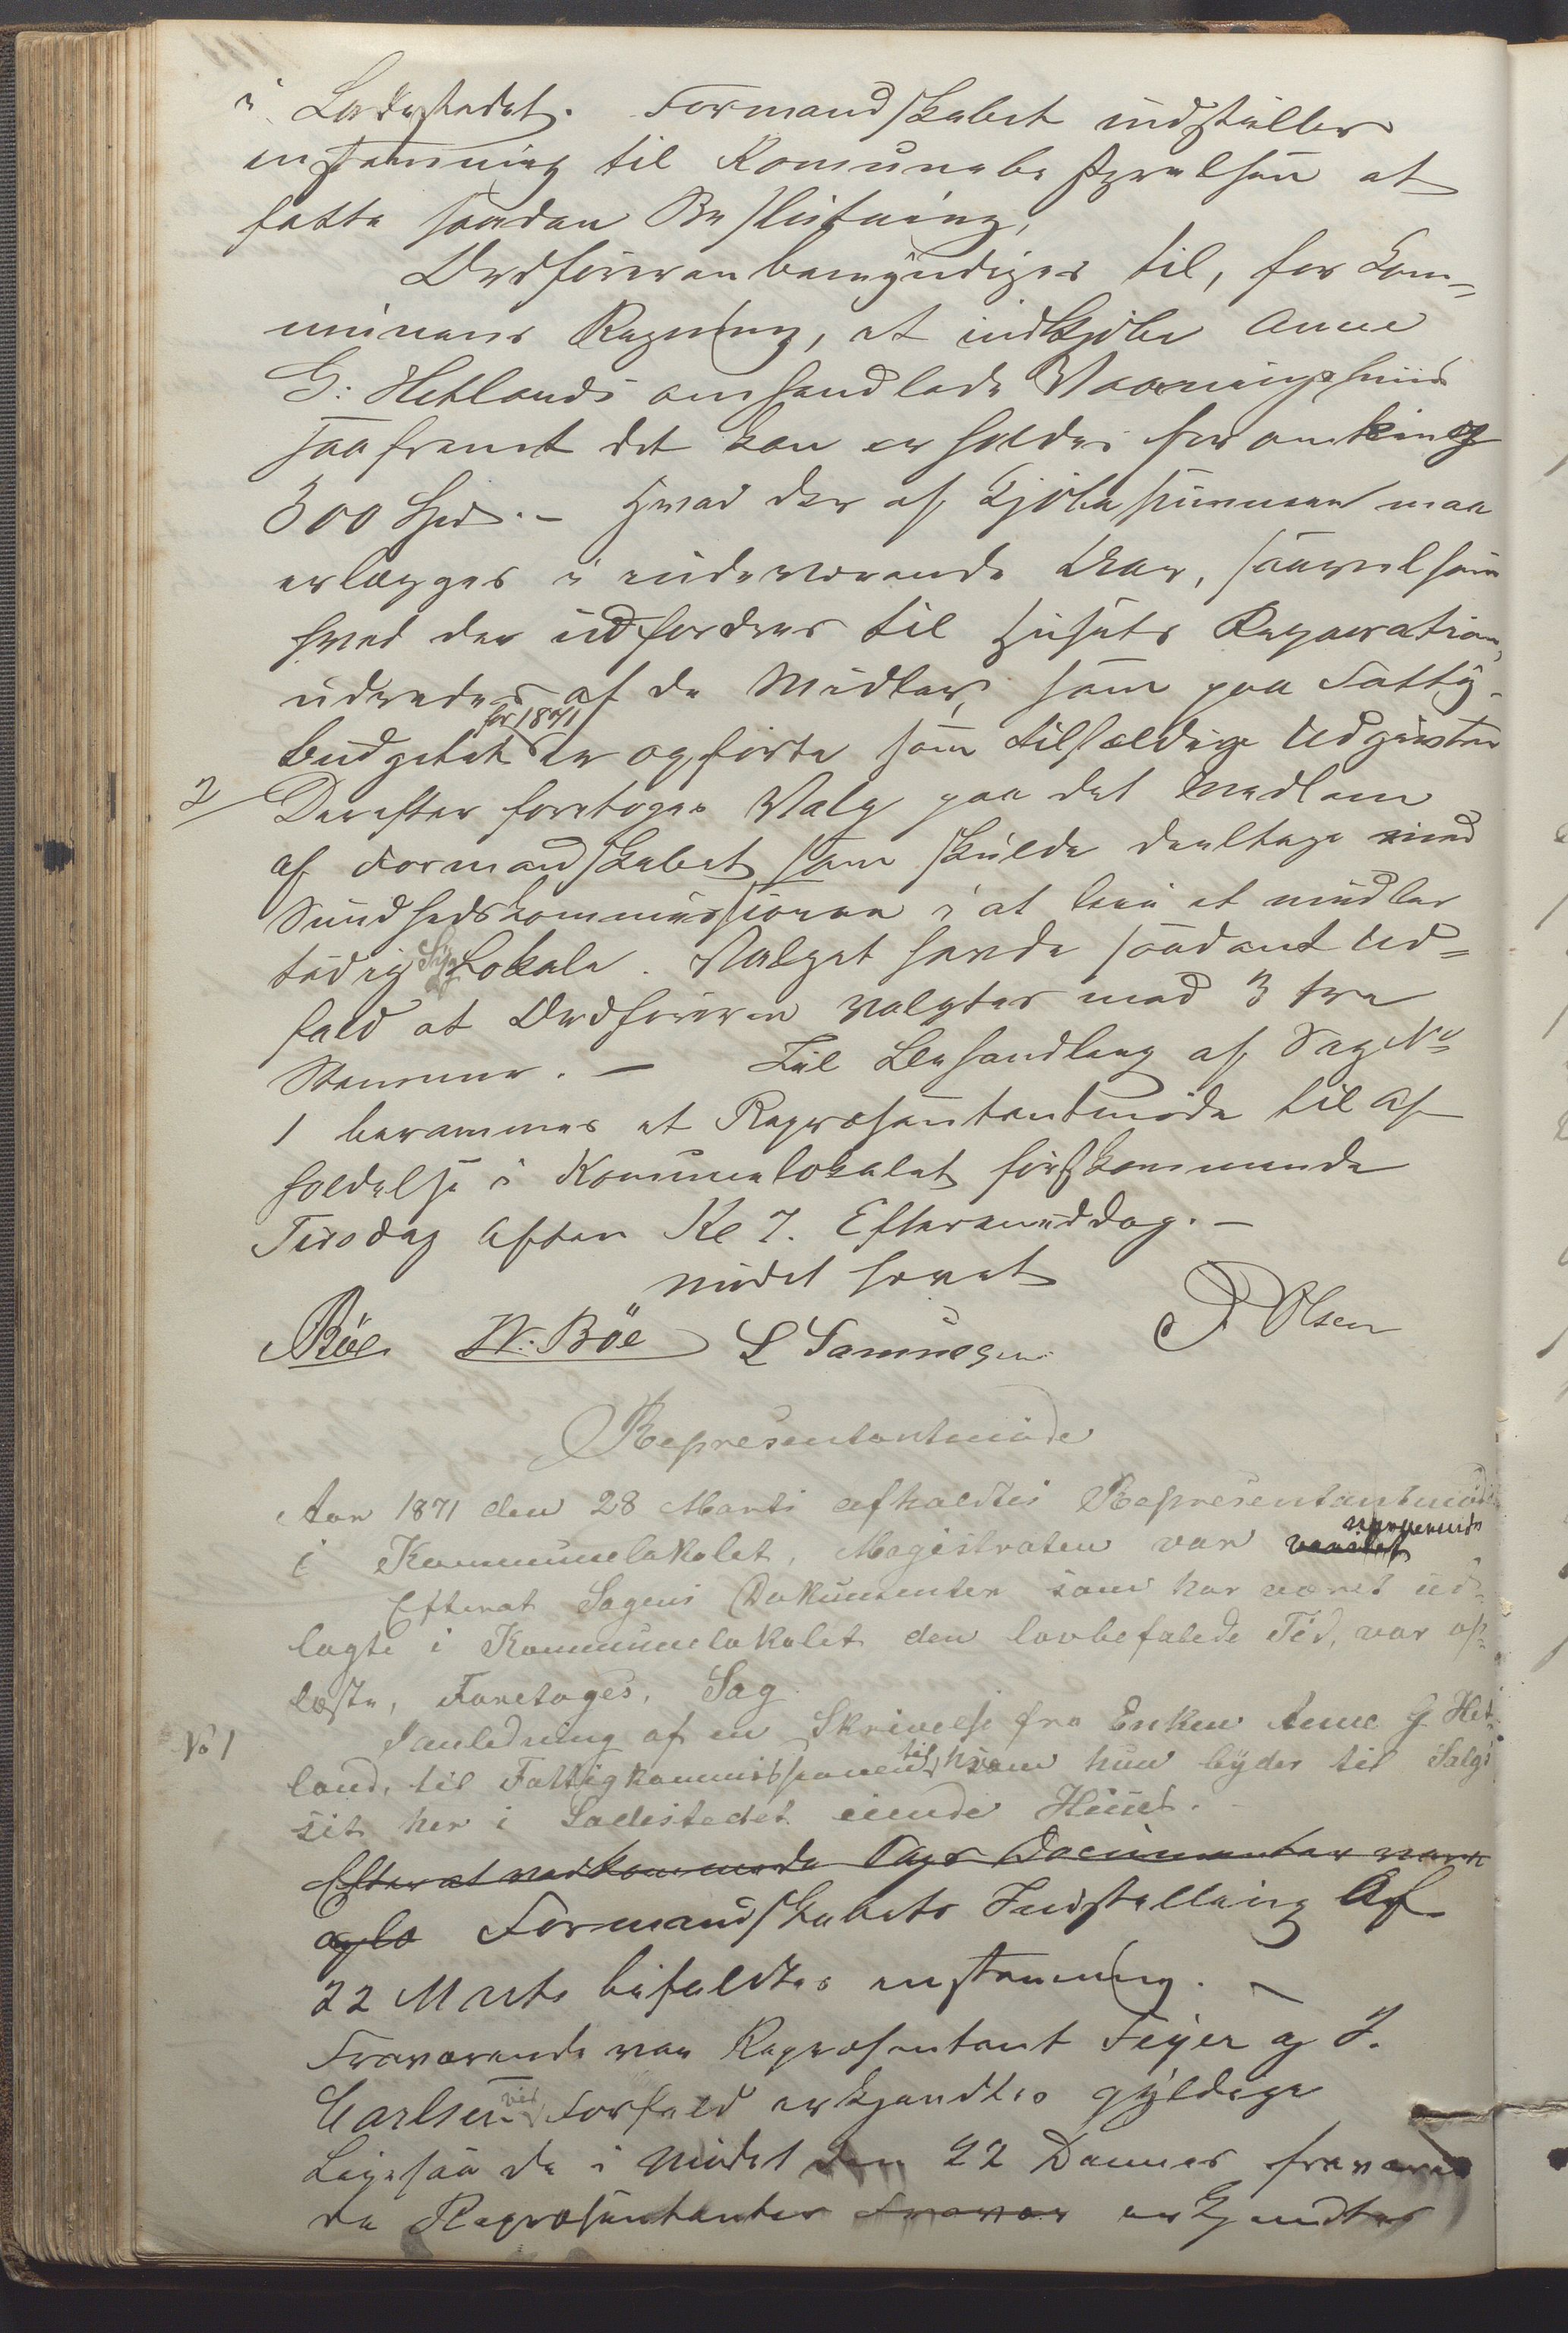 i Ladestedet. Formandskabet indstiller
enstemmig til Komunebestyrelsen at
fatte saadan Beslutning,
Ordföreren bemyndiges til, for Kom-
munens Regning, at indkjöbe Anne
G. Hetlands omhandlede Vaaningshuus
saafremt det kan erholdes for omkring
300 Spd. – Hvad der af Kjöbesummen maa
erlægges i indeværende Aar, saavelsom
hvad der udfordres til Husets Reparation,
udredes af de Midler, som paa Fattig-
budgetet for 1871 er opförte som tilfældige Udgivter
2/ Derefter foretoges Valg paa det Medlem
af Formandskabet som skulde deeltage med
Sundhedskommissionen i at leie et midler
tidig Syge Lokale. Valget havde saadant Ud-
fald at Ordföreren valgtes med 3 tre
Stemmer. – Til Behandling af Sag No
1 berammes et Repræsentantmöde til Af
holdelse i Komunelokalet förstkommende
Tirsdag Aften Kl 7. Eftermiddag. –
Mödet hævet
Böe N. Böe L Samuelsen P Olsen
Representantmöde
Aar 1871 den 28 Marts afholdtes Representantmöde
i Kommunelokalet, Magistraten var varslet nærværende
Efterat Sagens Dokumenter som har været ud-
lagte i Kommunelokalet den lovbefalede Tid, var op-
læste, Foretoges, Sag
No 1 I anledning af en Skrivelse fra Enken Anne G Het-
land, til Fattigkommissionen, til hvem hun byder til Salgs
sit her i Ladestedet eiende Huus.
Efterat vedkommende Sags Documenter vare
oplæ Formandskabets Indstilling Af
22 Marts bifaldtes enstemmig. –
Fraværende var Repræsentant Feyer og J.
Carlsen vis Forfald erkjendtes gyldige
Ligesaa de i Mödet den 22 Dennes fraværen
de Repræsentanter Fravær erkjendtes